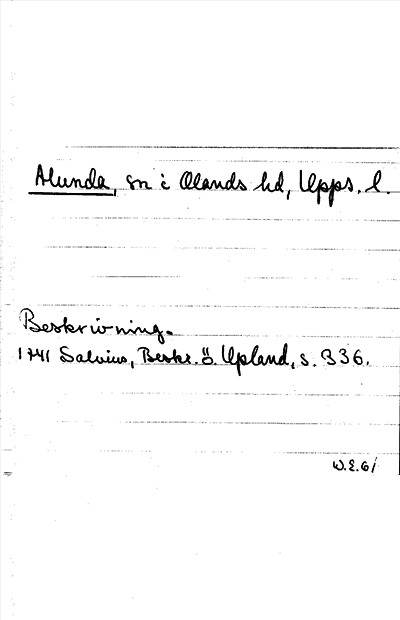 Alunda, sn i Olands hd, Upps. l.
Beskrivning.
1741 Salvius, Beskr. ö. Upland, s. 336.
W.E. 61